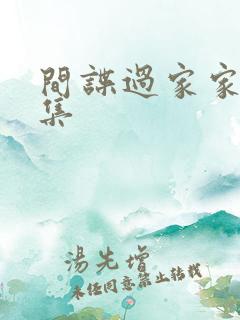 間諜過家家
集
湯先增
未经同意禁止转载